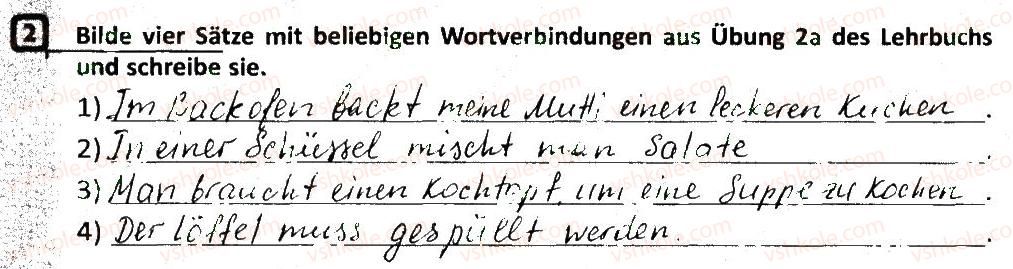 2 Bilde vier Sätze mit beliebigen Wortverbindungen aus Übung 2a des Lehrbuchs
und schreibe sie.
1) Im Backofen backt meine Mutti einen leckeren Kuchen.
2) In einer Schüssel mischt man Salate.
3) Man braucht einen Kochtopf, um eine Suppe zu kochen.
4) Der Löffel muss gespüllt werden.